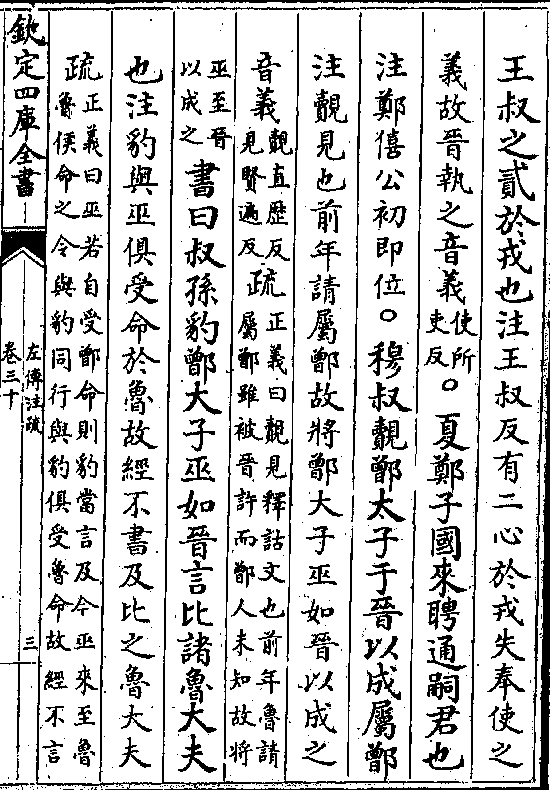 王叔之貳於戎也注王叔反有二心於戎失奉使之
義故晉執之音義使所
吏反○夏鄭子國來聘通嗣君也
注鄭僖公初即位○穆叔覿鄫太子于晉以成屬鄫
注覿見也前年請屬鄫故將鄫大子巫如晉以成之
音義覿直歷反
見賢遍反疏正義曰覿見釋詁文也前年魯請
屬鄫雖被晉許而鄫人未知故將
巫至晉
以成之書曰叔孫豹鄫大子巫如晉言比諸魯大夫
也注豹與巫俱受命於魯故經不書及比之魯大夫
疏正義曰巫若自受鄫命則豹當言及今巫來至魯
魯便命之令與豹同行與豹俱受魯命故經不言
欽定四庫全書
左傳注疏
卷三十
三